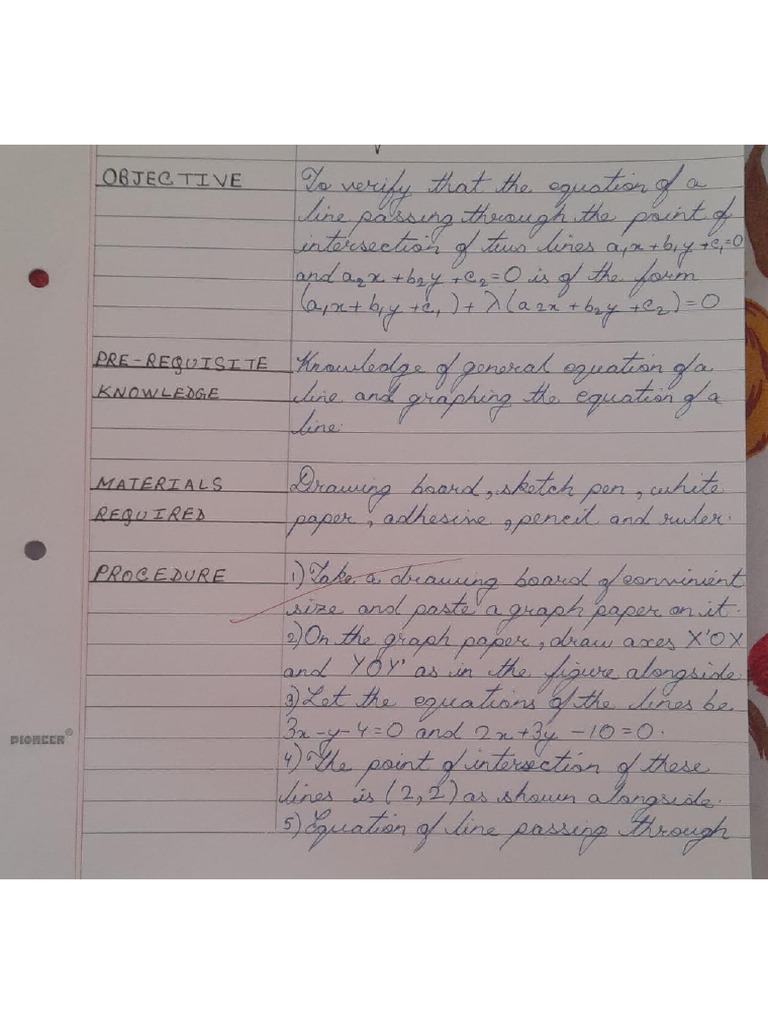 OBJECTIVE To verify that the equation of a
line passing through the point of
intersection of two lines a₁x + b₁y + c₁=0
and a₂x + b₂y + c₂=0 is of the form
(a₁x + b₁y + c₁) + λ(a₂x + b₂y + c₂) = 0
PRE-REQUISITE Knowledge of general equation of a
KNOWLEDGE line and graphing the equation of a
line.
MATERIALS Drawing board, sketch pen, white
REQUIRED paper, adhesive, pencil and ruler.
PROCEDURE 1) Take a drawing board of convinient
size and paste a graph paper on it.
2) On the graph paper, draw axes X'OX
and YOY' as in the figure alongside.
3) Let the equations of the lines be
3x-y-4=0 and 2x+3y-10=0.
PIONEER®
4) The point of intersection of these
lines is (2,2) as shown alongside.
5) Equation of line passing through